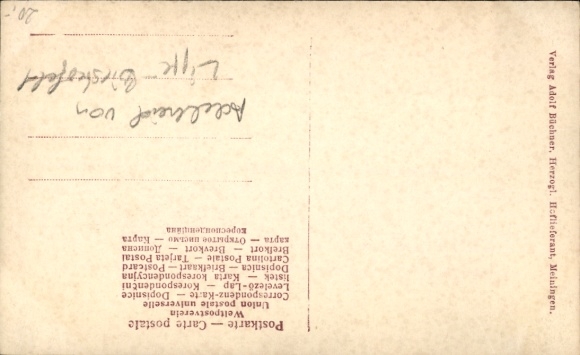 Postkarte — Carte postale
Weltpostverein
Union postale universelle
Correspondenz-Karte — Dopisnice
Levelező-Lap — Korespondenční
lístek — Karta korespondencyjna
Dopisnica — Briefkaart — Postcard
Cartolina Postale — Tarjeta Postal
Brefkort — Brevkort — Дописна
карта — Открытое письмо — Карта
кореспонденційна
Adelheid von
Lippe Biesterfeld
20,-
Verlag Adolf Büchner, Herzogl. Hoflieferant, Meiningen.